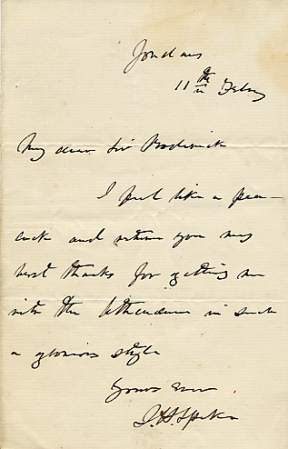 Jordans
11th Feby
My dear Sir Roderick
I feel like a pea-
cock and return you my
best thanks for getting me
into the Athenaeum in such
a glorious style
Yours Ever
J.H. Speke